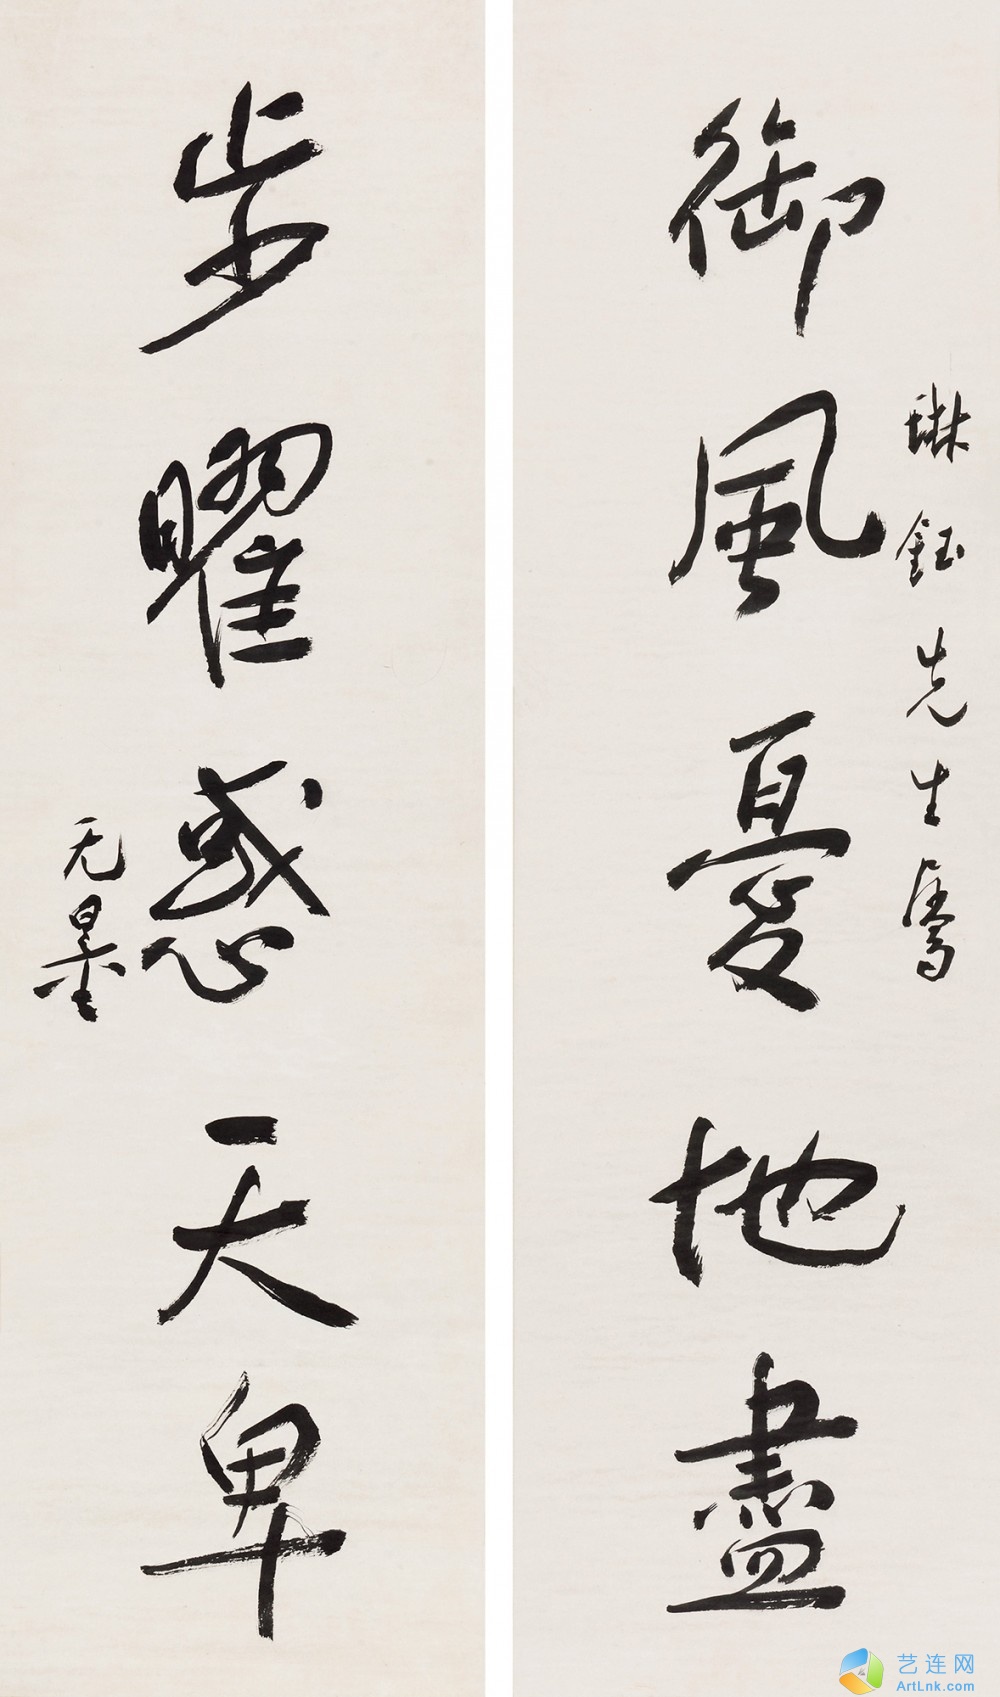 琳鈺先生屬
御風憂地盡
步曜惑天卑
无量
艺连网
ArtLnk.com